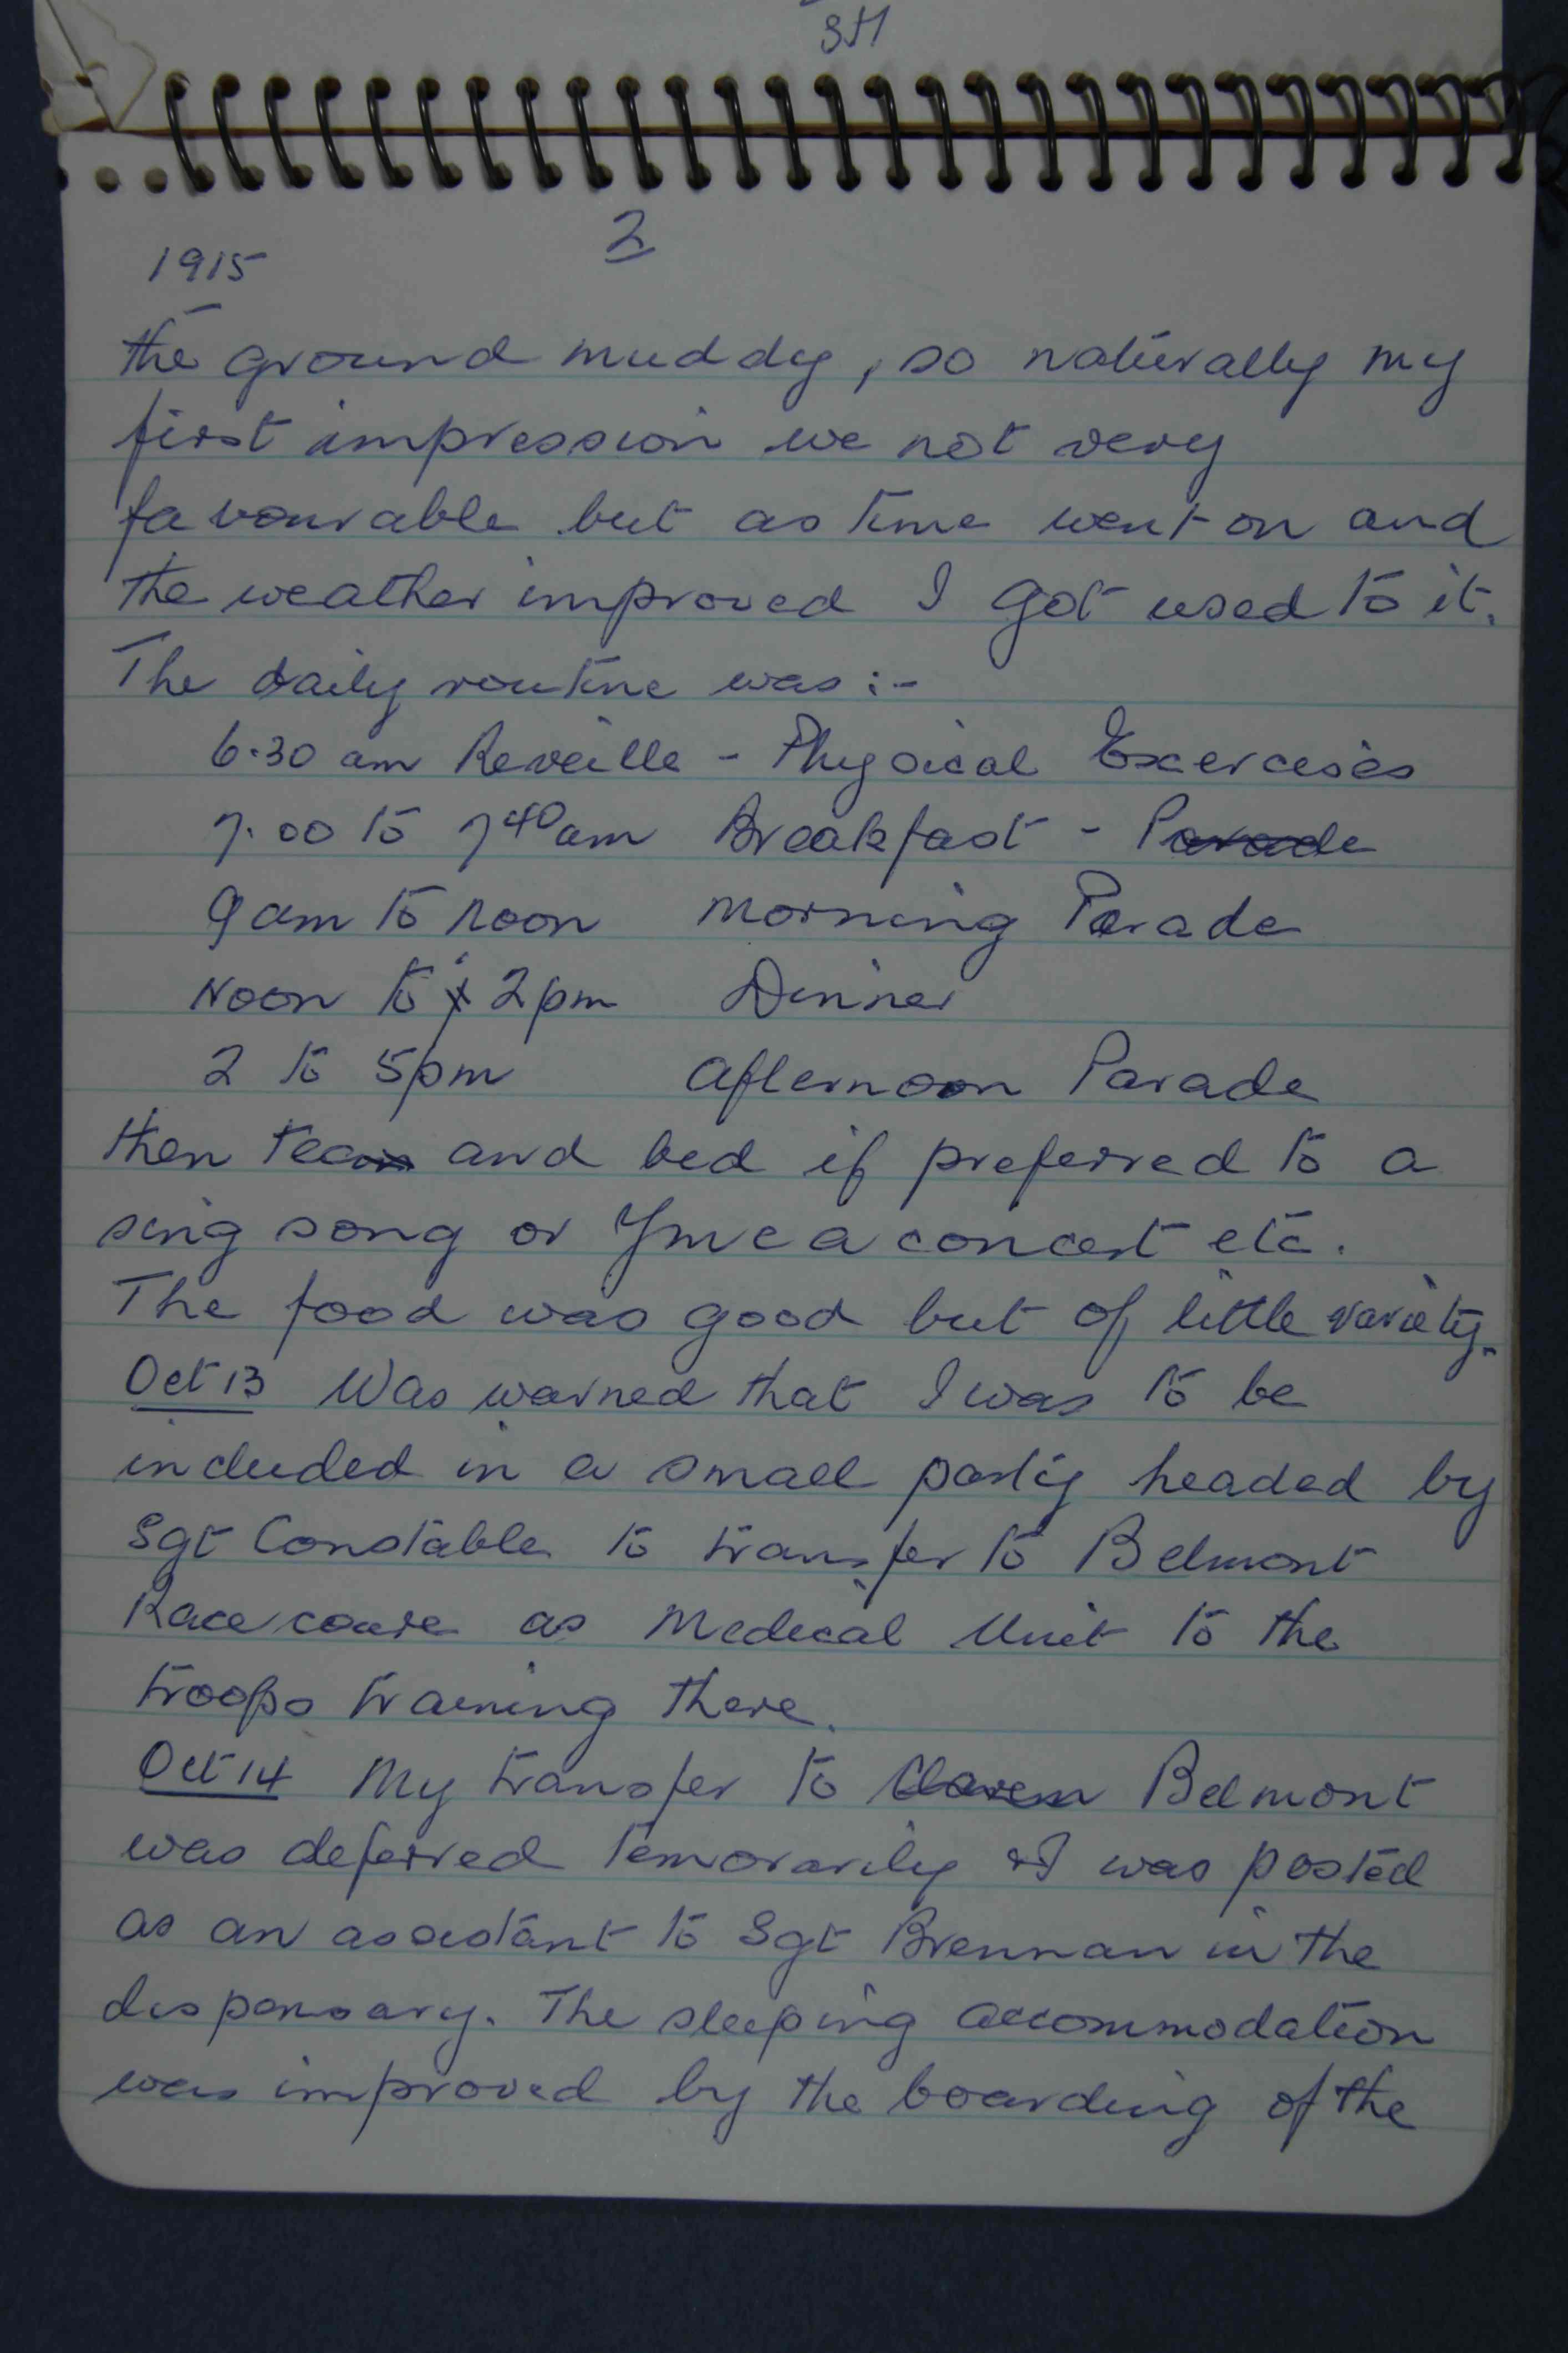 2
1915
the ground muddy, so naturally my
first impression we not very
favourable but as time went on and
the weather improved I got used to it.
The daily routine was :-
6.30 am Reveille - Physical Exercises
7.00 to 7 40 am Breakfast - Parade
9 am to noon morning Parade
Noon to 2 pm Dinner
2 to 5 pm afternoon Parade
then tea and bed if preferred to a
sing song or Ymca concert etc.
The food was good but of little variety.
Oct 13 Was warned that I was to be
included in a small party headed by
Sgt Constable to transfer to Belmont
Race course as Medical Unit to the
troops training there.
Oct 14 My transfer to Belmont
was deferred temorarily & I was posted
as an assistant to Sgt Brennan in the
dispensary. The sleeping accommodation
was improved by the boarding of the